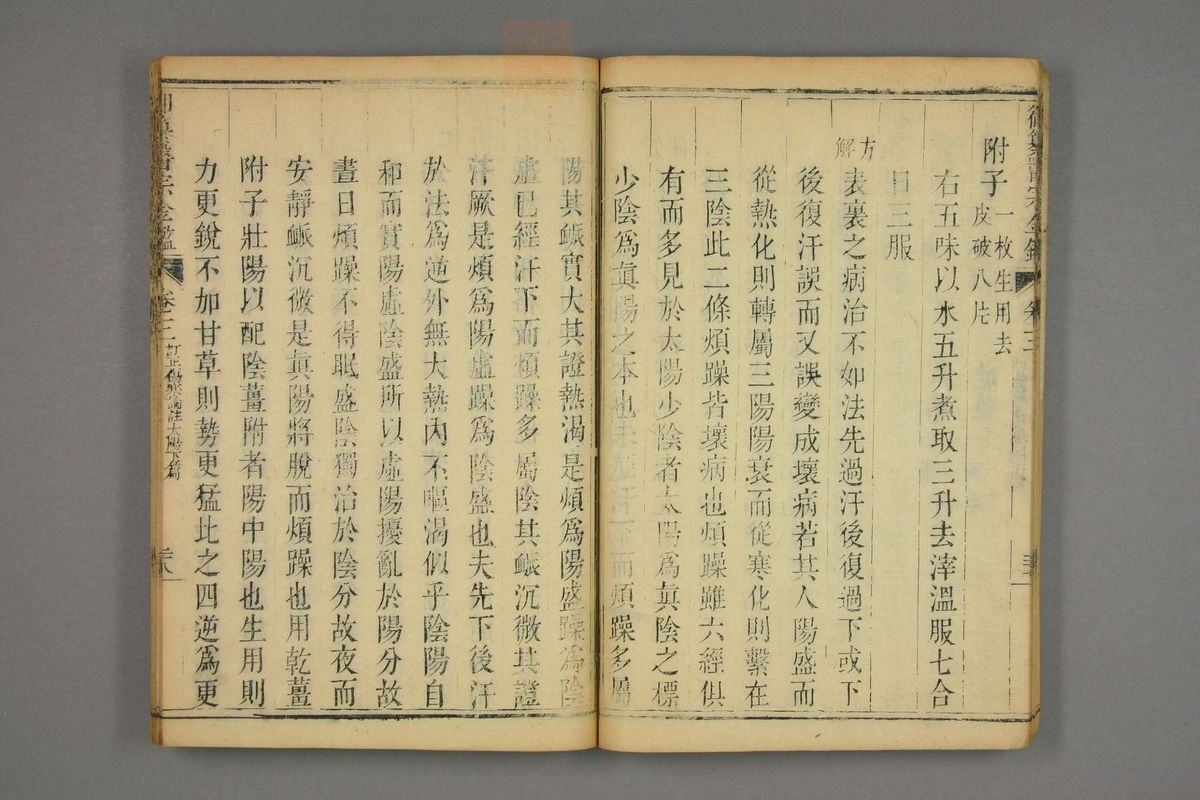 御纂醫宗金鑑 卷三
附子一枚生用去
皮破八片
右五味以水五升煮取三升去滓溫服七合
日三服
方解
表裏之病治不如法先過汗後復過下或下
後復汗誤而又誤變成壞病若其人陽盛而
從熱化則轉屬三陽陽衰而從寒化則繫在
三陰此二條煩躁皆壞病也煩躁雖六經俱
有而多見於太陽少陰者太陽爲眞陰之標
少陰爲眞陽之本也未而煩躁多屬
陽其脈實大其證熱渴是煩爲陽盛躁爲陰
虛已經汗下而煩躁多屬陰其脈沉微其證
汗厥是煩爲陽虛躁爲陰盛也夫先下後汗
於法爲逆外無大熱內不嘔渴似乎陰陽自
和而實陽虛陰盛所以虛陽擾亂於陽分故
晝日煩躁不得眠盛陰獨治於陰分故夜而
安靜脈沉微是眞陽將脫而煩躁也用乾薑
附子壯陽以配陰薑附者陽中陽也生用則
力更銳不加甘草則勢更猛比之四逆爲更
醫宗金鑑 卷三 訂正傷寒論註太陽下篇